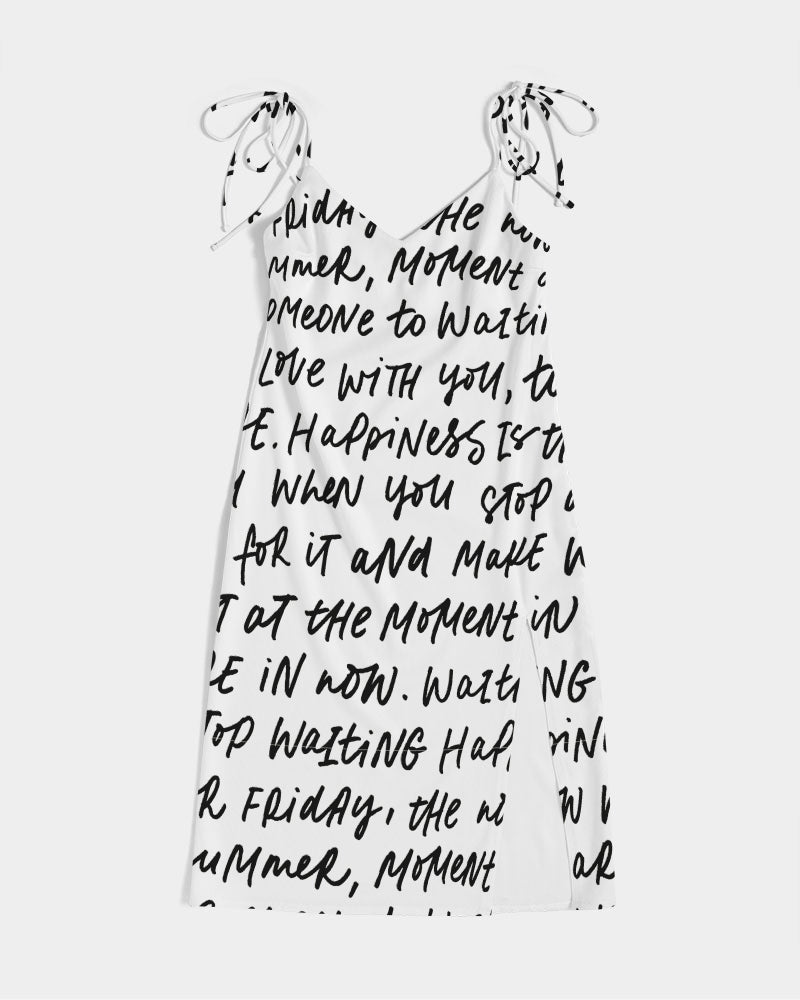 FRidAy, tHe
ummeR, MoMeNt
oMeoNe to WaItiN
Love WiTH you, to
RE. HaPPiNeSS Is tH
WheN you STOP
foR iT aNd MaKE W
T aT tHe MoMeNt iN
RE iN NOW. WaIti NG
TOP WaItiNG HaP PiN
R FRidAy, tHe no W W
uMmeR, MoMeNt aR